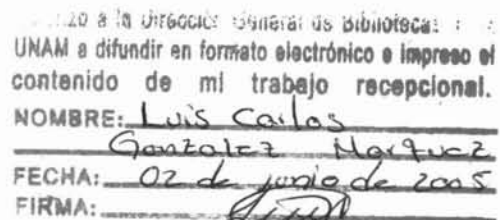 a la Dirección General de Bibliotecas
UNAM a difundir en formato electrónico e impreso el
contenido de mi trabajo recepcional.
NOMBRE: Luis Carlos
Gonzalez Marquez
FECHA: 02 de junio de 2005
FIRMA: